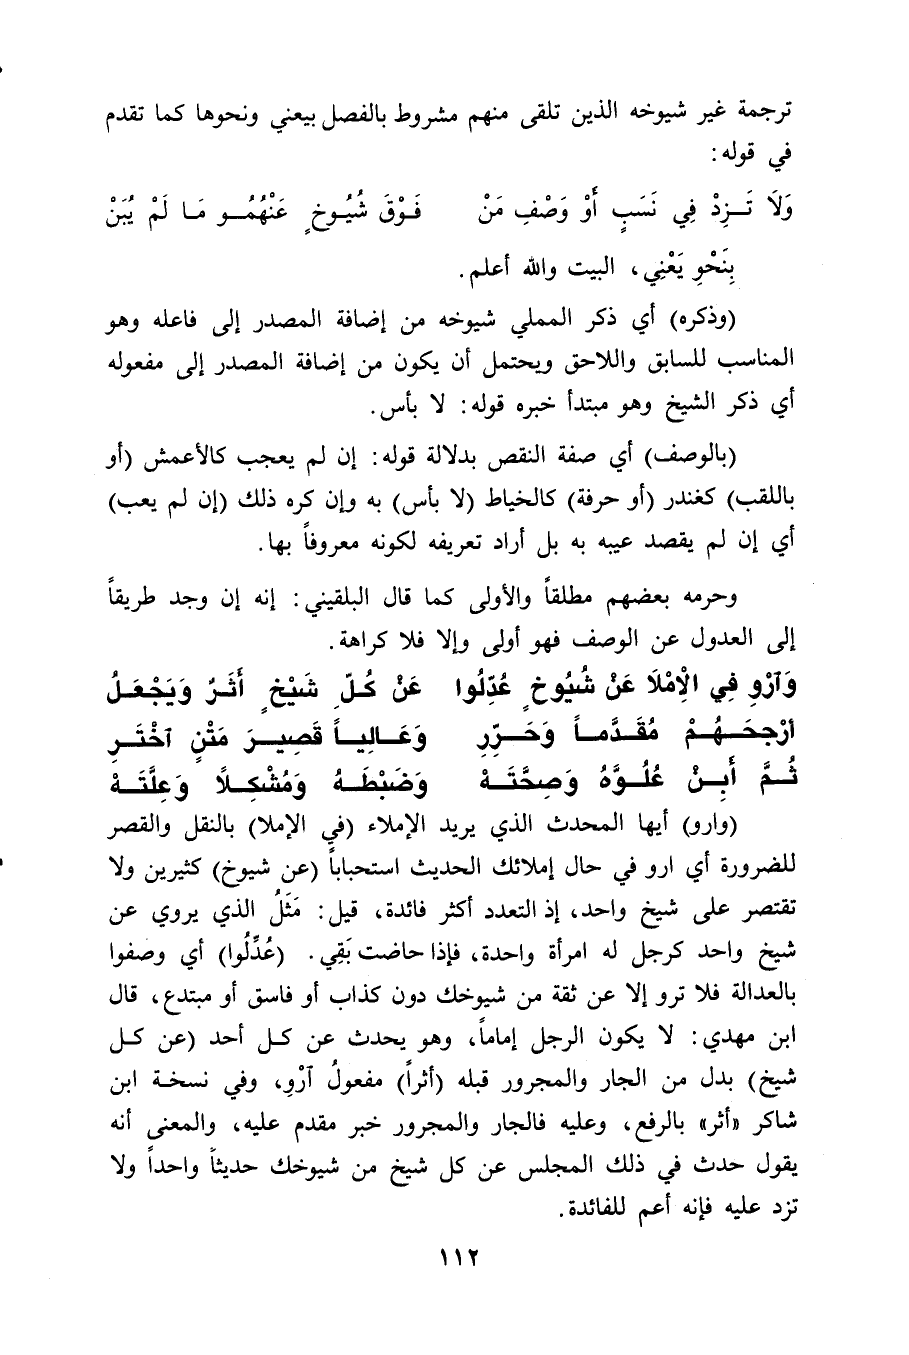 ترجمة غير شيوخه الذين تلقى منهم مشروط بالفصل بيعني ونحوها كما تقدم
في قوله:
وَلَا تَـزِدْ فِي نَسَبٍ أَوْ وَصْفِ مَنْ فَـوْقَ شُيُـوخٍ عَنْهُمُــو مَـا لَمْ يُبَنْ
بِنَحْوِ يَعْنِي، البيت والله أعلم.
(وذكره) أي ذكر المملي شيوخه من إضافة المصدر إلى فاعله وهو
المناسب للسابق واللاحق ويحتمل أن يكون من إضافة المصدر إلى مفعوله
أي ذكر الشيخ وهو مبتدأ خبره قوله: لا بأس.
(بالوصف) أي صفة النقص بدلالة قوله: إن لم يعجب كالأعمش (أو
باللقب) كغندر (أو حرفة) كالخياط (لا بأس) به وإن كره ذلك (إن لم يعب)
أي إن لم يقصد عيبه به بل أراد تعريفه لكونه معروفاً بها.
وحرمه بعضهم مطلقاً والأولى كما قال البلقيني: إنه إن وجد طريقاً
إلى العدول عن الوصف فهو أولى وإلا فلا كراهة.
وَآرْوِ فِي الإِمْلَا عَنْ شُيُوخٍ عُدِّلُوا عَنْ كُلِّ شَيْخٍ أَثَرٌ وَيَجْعَلُ
أَرْجَحَـهُـمْ مُقَـدَّمـاً وَحَـرِّرِ وَعَـالِيـاً قَصِيـرَ مَتْنٍ آخْتَـرِ
ثُـمَّ أَبِـنْ عُلُـوَّهُ وَصِحَّتَـهْ وَضَبْطَـهُ وَمُشْكِـلًا وَعِلَّتَـهْ
(وارو) أيها المحدث الذي يريد الإملاء (في الإملا) بالنقل والقصر
للضرورة أي ارو في حال إملائك الحديث استحباباً (عن شيوخ) كثيرين ولا
تقتصر على شيخ واحد، إذ التعدد أكثر فائدة، قيل: مَثَلُ الذي يروي عن
شيخ واحد كرجل له امرأة واحدة، فإذا حاضت بَقِي. (عُدِّلُوا) أي وصفوا
بالعدالة فلا ترو إلا عن ثقة من شيوخك دون كذاب أو فاسق أو مبتدع، قال
ابن مهدي: لا يكون الرجل إماماً، وهو يحدث عن كـل أحد (عن كـل
شيخ) بدل من الجار والمجرور قبله (أثراً) مفعولُ آرْوِ، وفي نسخة ابن
شاكر «أثر» بالرفع، وعليه فالجار والمجرور خبر مقدم عليه، والمعنى أنه
يقول حدث في ذلك المجلس عن كل شيخ من شيوخك حديثاً واحداً ولا
تزد عليه فإنه أعم للفائدة.
١١٢